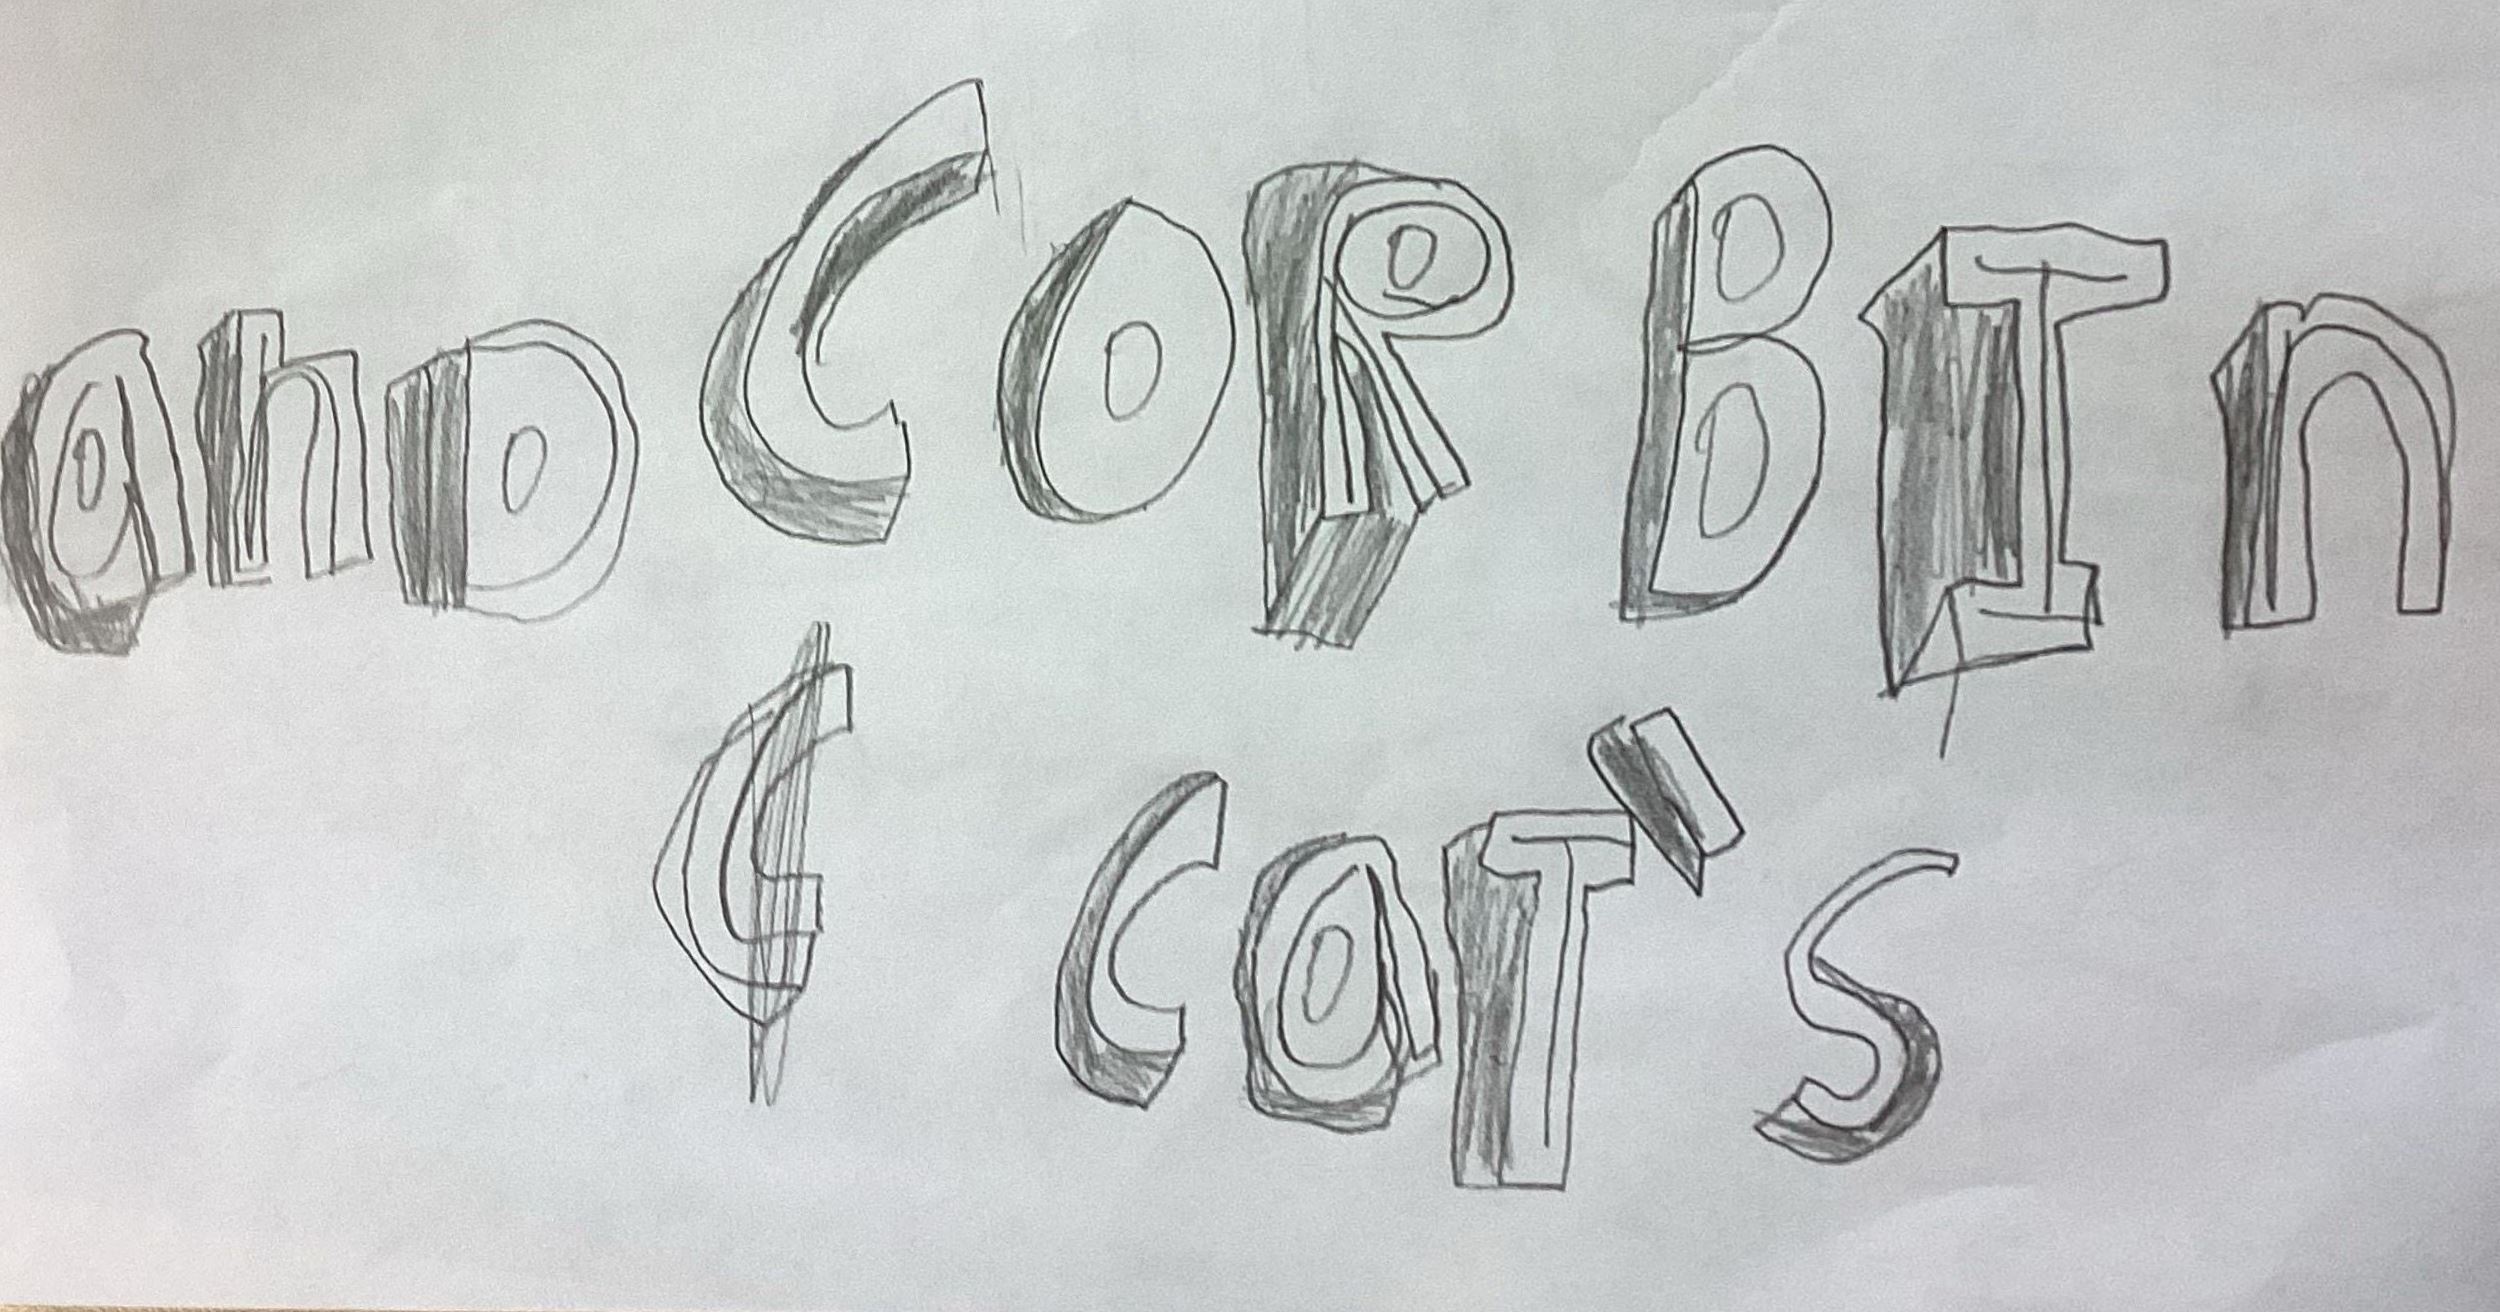 anD CORBIn
¢ CaT's